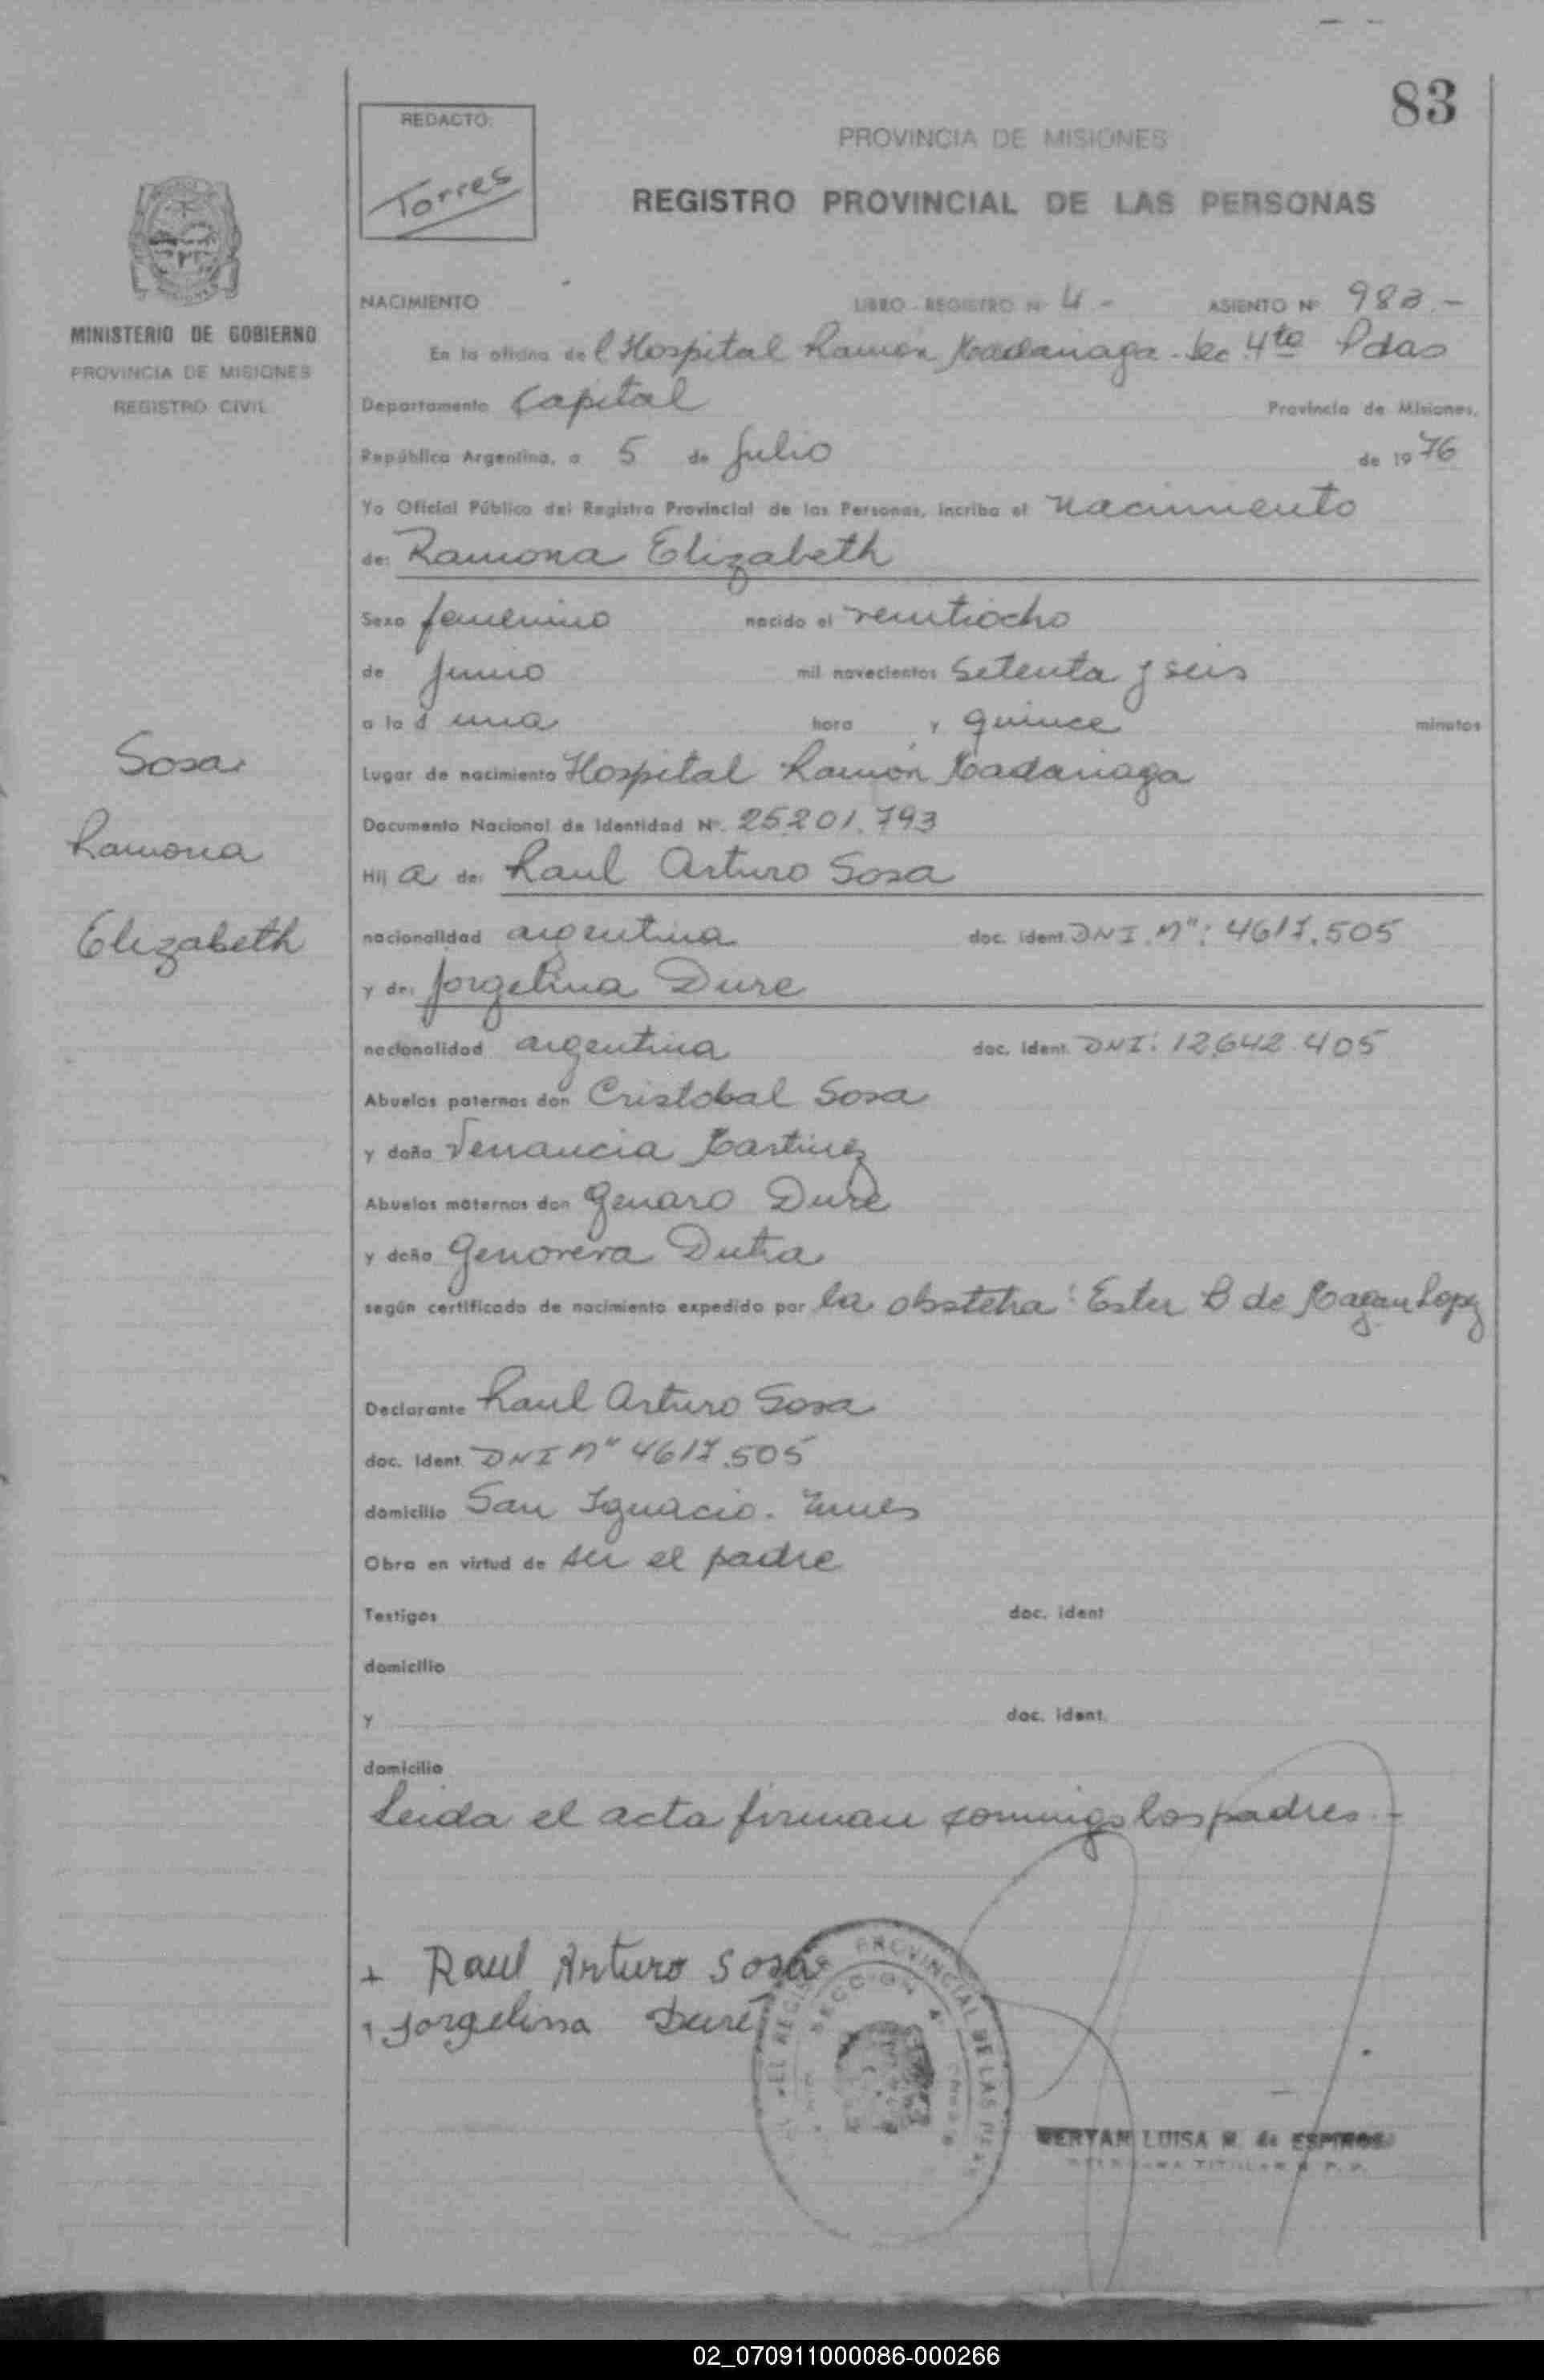 83
REDACTO:
Torres
PROVINCIA DE MISIONES
REGISTRO PROVINCIAL DE LAS PERSONAS
MINISTERIO DE GOBIERNO
PROVINCIA DE MISIONES
REGISTRO CIVIL
NACIMIENTO LIBRO - REGISTRO Nº 4 - ASIENTO Nº 983.-
En la oficina del Hospital Ramón Madariaga - Sec 4ta Pdas
Departamento Capital Provincia de Misiones,
República Argentina, a 5 de Julio de 1976
Yo Oficial Público del Registro Provincial de las Personas, incribo el nacimiento
de: Ramona Elizabeth
Sexo femenino nacido el veintiocho
de Junio mil novecientos setenta y seis
a la d una hora y quince minutos
Lugar de nacimiento Hospital Ramón Madariaga
Documento Nacional de Identidad Nº. 25.201.793
Hij a de: Raul Arturo Sosa
nacionalidad argentina doc. ident. DNI. Nº: 4617.505
y de: Jorgelina Dure
nacionalidad argentina doc. ident. DNI: 12.642.405
Abuelos paternos don Cristobal Sosa
y doña Venancia Martinez
Abuelos maternos don Genaro Dure
y doña Genoveva Dutra
según certificado de nacimiento expedido por la obstetra: Ester B de Magan Lopez
Declarante Raul Arturo Sosa
doc. ident. DNI Nº 4617.505
domicilio San Ignacio.
Obra en virtud de ser el padre
Testigos doc. ident
domicilio
y doc. ident.
domicilio
Leida el acta firman conmigo los padres.-
Sosa
Ramona
Elizabeth
+ Raul Arturo Sosa
Jorgelina Duré
REGISTRO PROVINCIAL DE LAS
SECCION 4
LUISA M. de
02_070911000086-000266